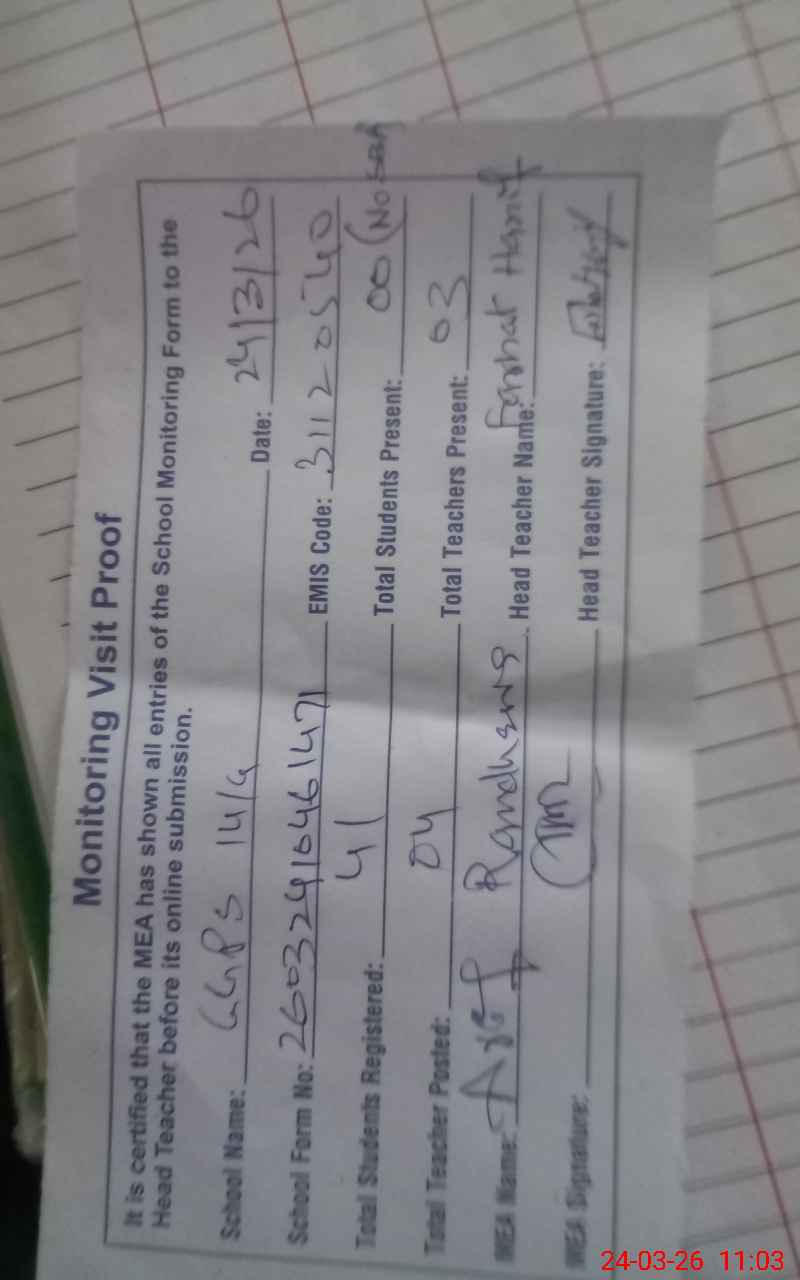 Monitoring Visit Proof
It is certified that the MEA has shown all entries of the School Monitoring Form to the
Head Teacher before its online submission.
School Name: GGPS 14/G Date: 24/3/26
School Form No: 26032410461471 EMIS Code: 31120540
Total Students Registered: 41 Total Students Present: 00 (No SBA
Total Teacher Posted: 04 Total Teachers Present: 03
MEA Name: Randhawa Head Teacher Name: Farhat Hanif
MEA Signature: Head Teacher Signature:
24-03-26 11:03